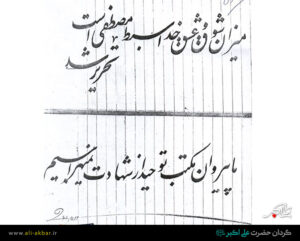 میزان شوق و عشق خدا سبط مصطفی است
تحریر شد
ما پیروان مکتب توحید از شهادت نمیهراسیم
www.ali-akbar.ir
گردان حضرت علی اکبر